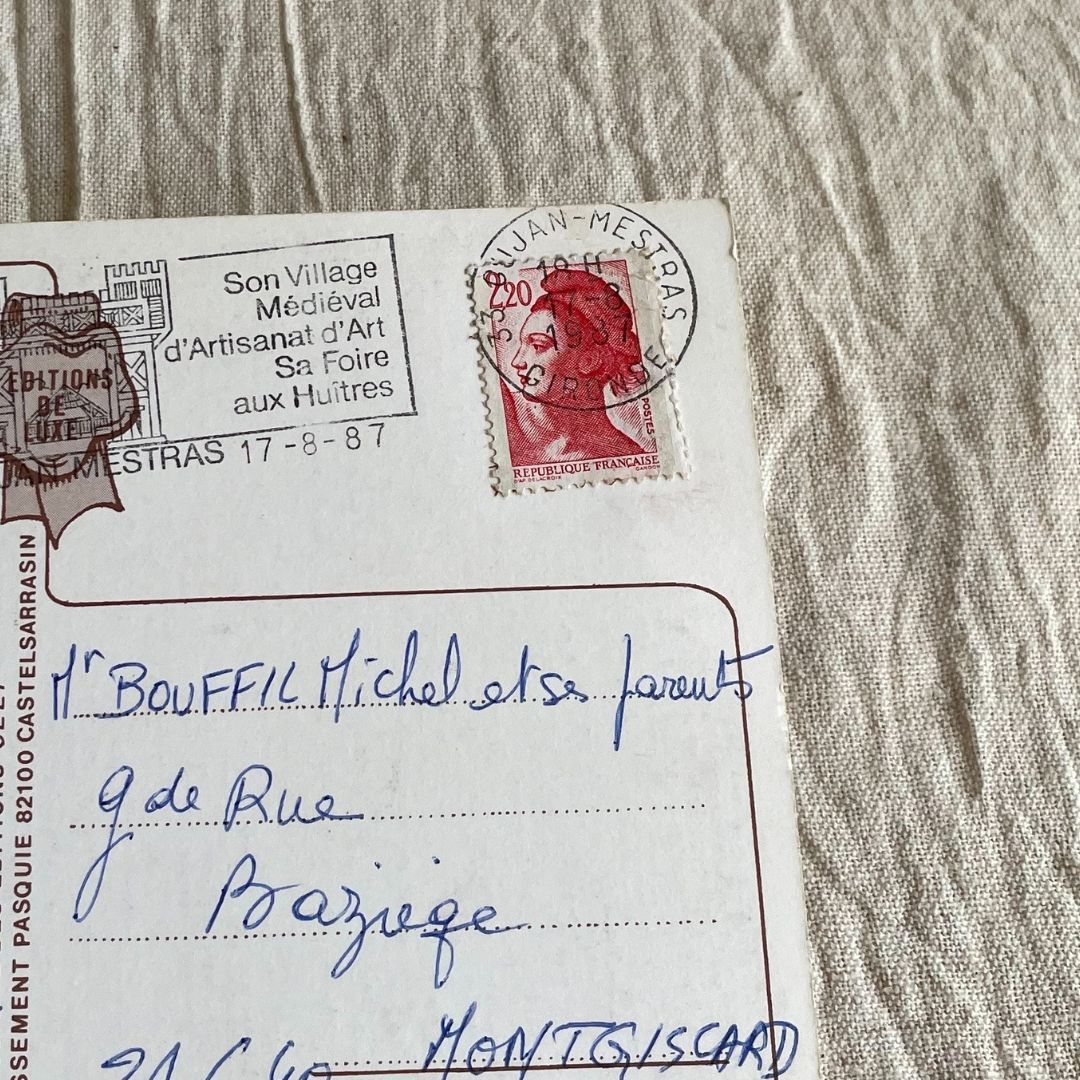 Son Village
Médiéval
d'Artisanat d'Art
Sa Foire
aux Huîtres
MESTRAS 17-8-87
EDITIONS
DE
LUXE
UJAN-MESTRAS
19 H
17-8
1987
GIRONDE
2,20
POSTES
REPUBLIQUE FRANÇAISE
D'AP. DELACROIX
GANDON
SSEMENT PASQUIE 82100 CASTELSARRASIN
Mr BOUFFIL Michel et ses parents
g de Rue
Baziège
MONTGISCARD